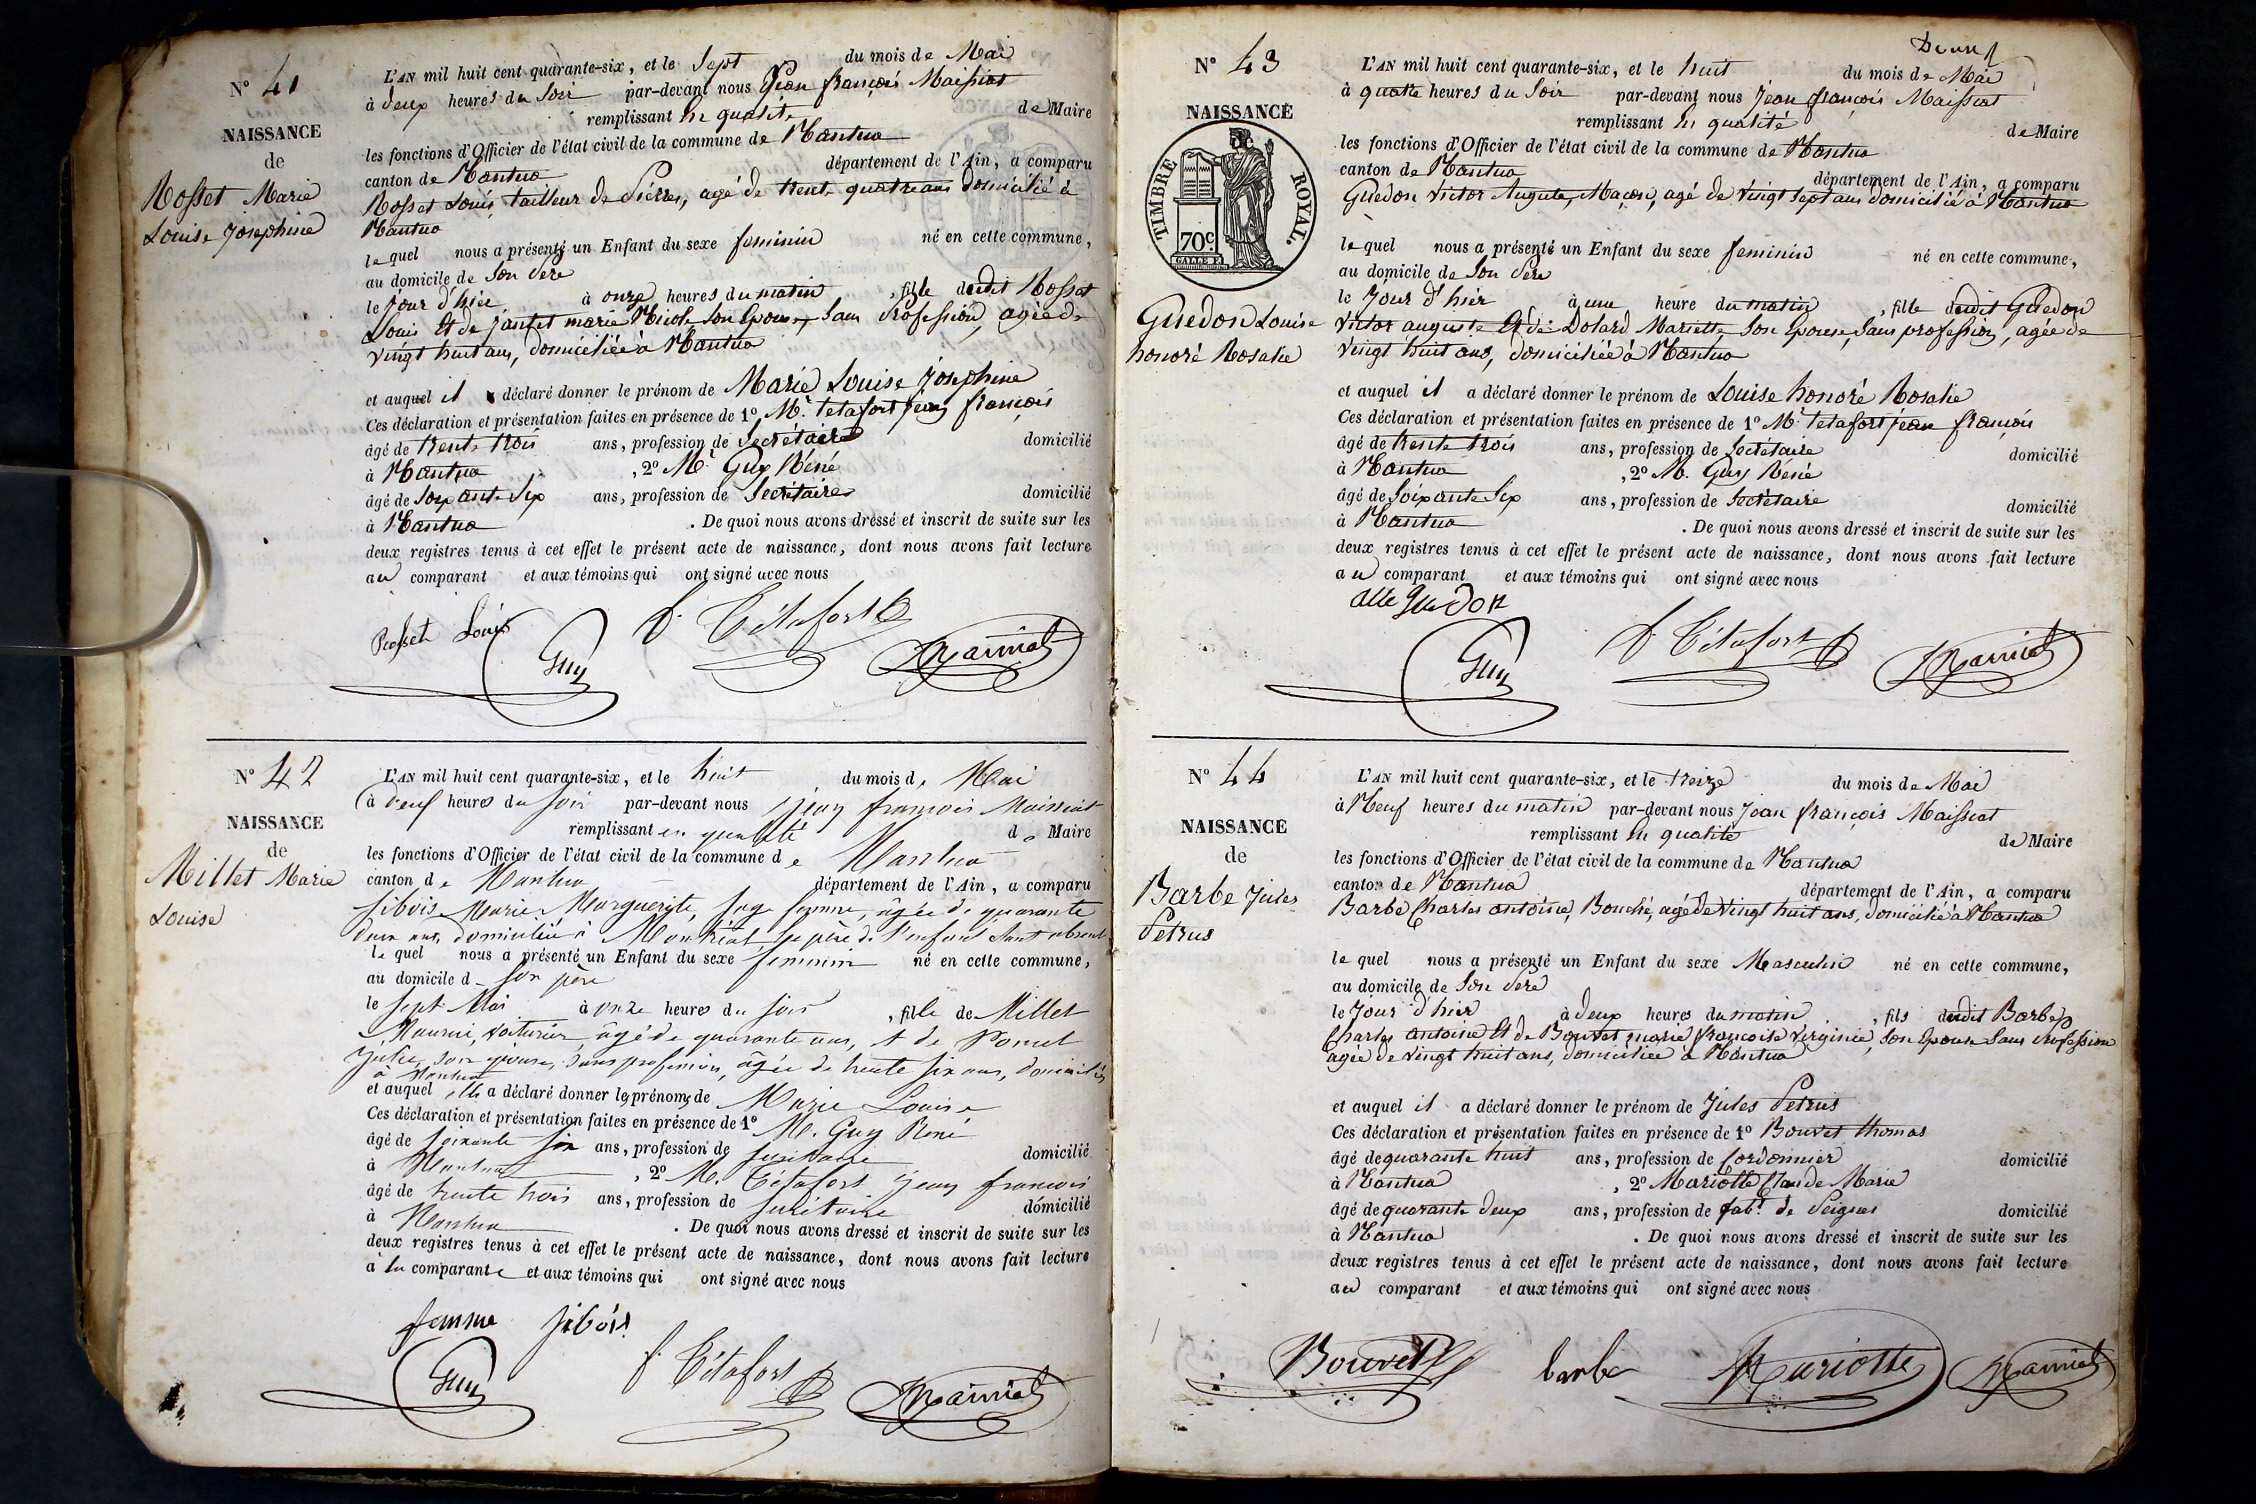 N° 41
NAISSANCE
de
Rosset Marie
Louise Joséphine
L'AN mil huit cent quarante-six, et le Sept du mois de Mai
à deux heures du Soir par-devant nous Jean françois Maissiat
remplissant En qualité de Maire
les fonctions d'Officier de l'état civil de la commune de Nantua
canton de Nantua département de l'Ain, a comparu
Rosset Louis, tailleur de Pierres, agé de trente quatre ans domicilié à
Nantua
le quel nous a présenté un Enfant du sexe feminin né en cette commune,
au domicile de Son Père
le Jour d'hier à onze heures du matin, fille dudit Rosset
Louis Et de Janfet marie Nicole Son Epouse, Sans Profession, agée de
vingt huit ans, domiciliée à Nantua
et auquel il a déclaré donner le prénom de Marie Louise Joséphine
Ces déclaration et présentation faites en présence de 1° Mr. tetafort jean françois
âgé de trente trois ans, profession de Secrétaire domicilié
à Nantua, 2° Mr. Guy Réné
âgé de Soixante Six ans, profession de Secrétaire domicilié
à Nantua. De quoi nous avons dressé et inscrit de suite sur les
deux registres tenus à cet effet le présent acte de naissance, dont nous avons fait lecture
au comparant et aux témoins qui ont signé avec nous
Rosset Louis
Guy
f. Tétafort
Maissiat
N° 42
NAISSANCE
de
Millet Marie
Louise
L'AN mil huit cent quarante-six, et le huit du mois de Mai
à deux heures du soir par-devant nous Jean françois Maissiat
remplissant en qualité de Maire
les fonctions d'Officier de l'état civil de la commune de Nantua
canton de Nantua département de l'Ain, a comparu
Sibois Marie Marguerite, sage femme, âgée de quarante
deux ans, domiciliée à Montréal, le père de l'enfant étant absent
le quel nous a présenté un Enfant du sexe feminin né en cette commune,
au domicile de son père
le sept Mai à onze heures du soir, fille de Millet
voiturier, âgé de quarante ans, et de
Julie, son épouse, sans profession, âgée de trente six ans, domiciliés
à Nantua
et auquel elle a déclaré donner les prénoms de Marie Louise
Ces déclaration et présentation faites en présence de 1° M. Guy René
âgé de soixante six ans, profession de secrétaire domicilié
à Nantua, 2° M. Tétafort Jean françois
âgé de trente trois ans, profession de secrétaire domicilié
à Nantua. De quoi nous avons dressé et inscrit de suite sur les
deux registres tenus à cet effet le présent acte de naissance, dont nous avons fait lecture
à la comparante et aux témoins qui ont signé avec nous
femme Sibois
Guy
f. Tétafort
Maissiat
N° 43
NAISSANCE
TIMBRE ROYAL.
70c.
Guedon Louise
honoré Rosalie
L'AN mil huit cent quarante-six, et le huit du mois de Mai
à quatre heures du Soir par-devant nous Jean françois Maissiat
remplissant En qualité de Maire
les fonctions d'Officier de l'état civil de la commune de Nantua
canton de Nantua département de l'Ain, a comparu
Guedon Victor Auguste, Maçon, agé de vingt sept ans domicilié à Nantua
le quel nous a présenté un Enfant du sexe feminin né en cette commune,
au domicile de Son Père
le Jour d'hier à une heure du matin, fille dudit Guedon
Victor auguste Et de Dolard Mariette Son Epouse, Sans profession, agée de
vingt huit ans, domiciliée à Nantua
et auquel il a déclaré donner le prénom de Louise honoré Rosalie
Ces déclaration et présentation faites en présence de 1° Mr. tetafort jean françois
âgé de trente trois ans, profession de Secrétaire domicilié
à Nantua, 2° M. Guy Réné
âgé de Soixante Six ans, profession de Secrétaire domicilié
à Nantua. De quoi nous avons dressé et inscrit de suite sur les
deux registres tenus à cet effet le présent acte de naissance, dont nous avons fait lecture
au comparant et aux témoins qui ont signé avec nous
Guedon
Guy
f. Tétafort
Maissiat
N° 44
NAISSANCE
de
Barbe Jules
Petrus
L'AN mil huit cent quarante-six, et le treize du mois de Mai
à Neuf heures du matin par-devant nous Jean françois Maissiat
remplissant En qualité de Maire
les fonctions d'Officier de l'état civil de la commune de Nantua
canton de Nantua département de l'Ain, a comparu
Barbe Charles antoine, Bouché, agé de vingt huit ans, domicilié à Nantua
le quel nous a présenté un Enfant du sexe Masculin né en cette commune,
au domicile de Son Père
le Jour d'hier à deux heures du matin, fils dudit Barbe
Charles antoine Et de Bouvet marie françoise Verginie, Son Epouse Sans Profession
agée de vingt huit ans, domiciliée à Nantua
et auquel il a déclaré donner le prénom de Jules Petrus
Ces déclaration et présentation faites en présence de 1° Bouvet thomas
âgé de quarante huit ans, profession de Cordonnier domicilié
à Nantua, 2° Mariotte Claude Marie
âgé de quarante deux ans, profession de fabt. de Peignes domicilié
à Nantua. De quoi nous avons dressé et inscrit de suite sur les
deux registres tenus à cet effet le présent acte de naissance, dont nous avons fait lecture
au comparant et aux témoins qui ont signé avec nous
Bouvet
barbe
Mariotte
Maissiat